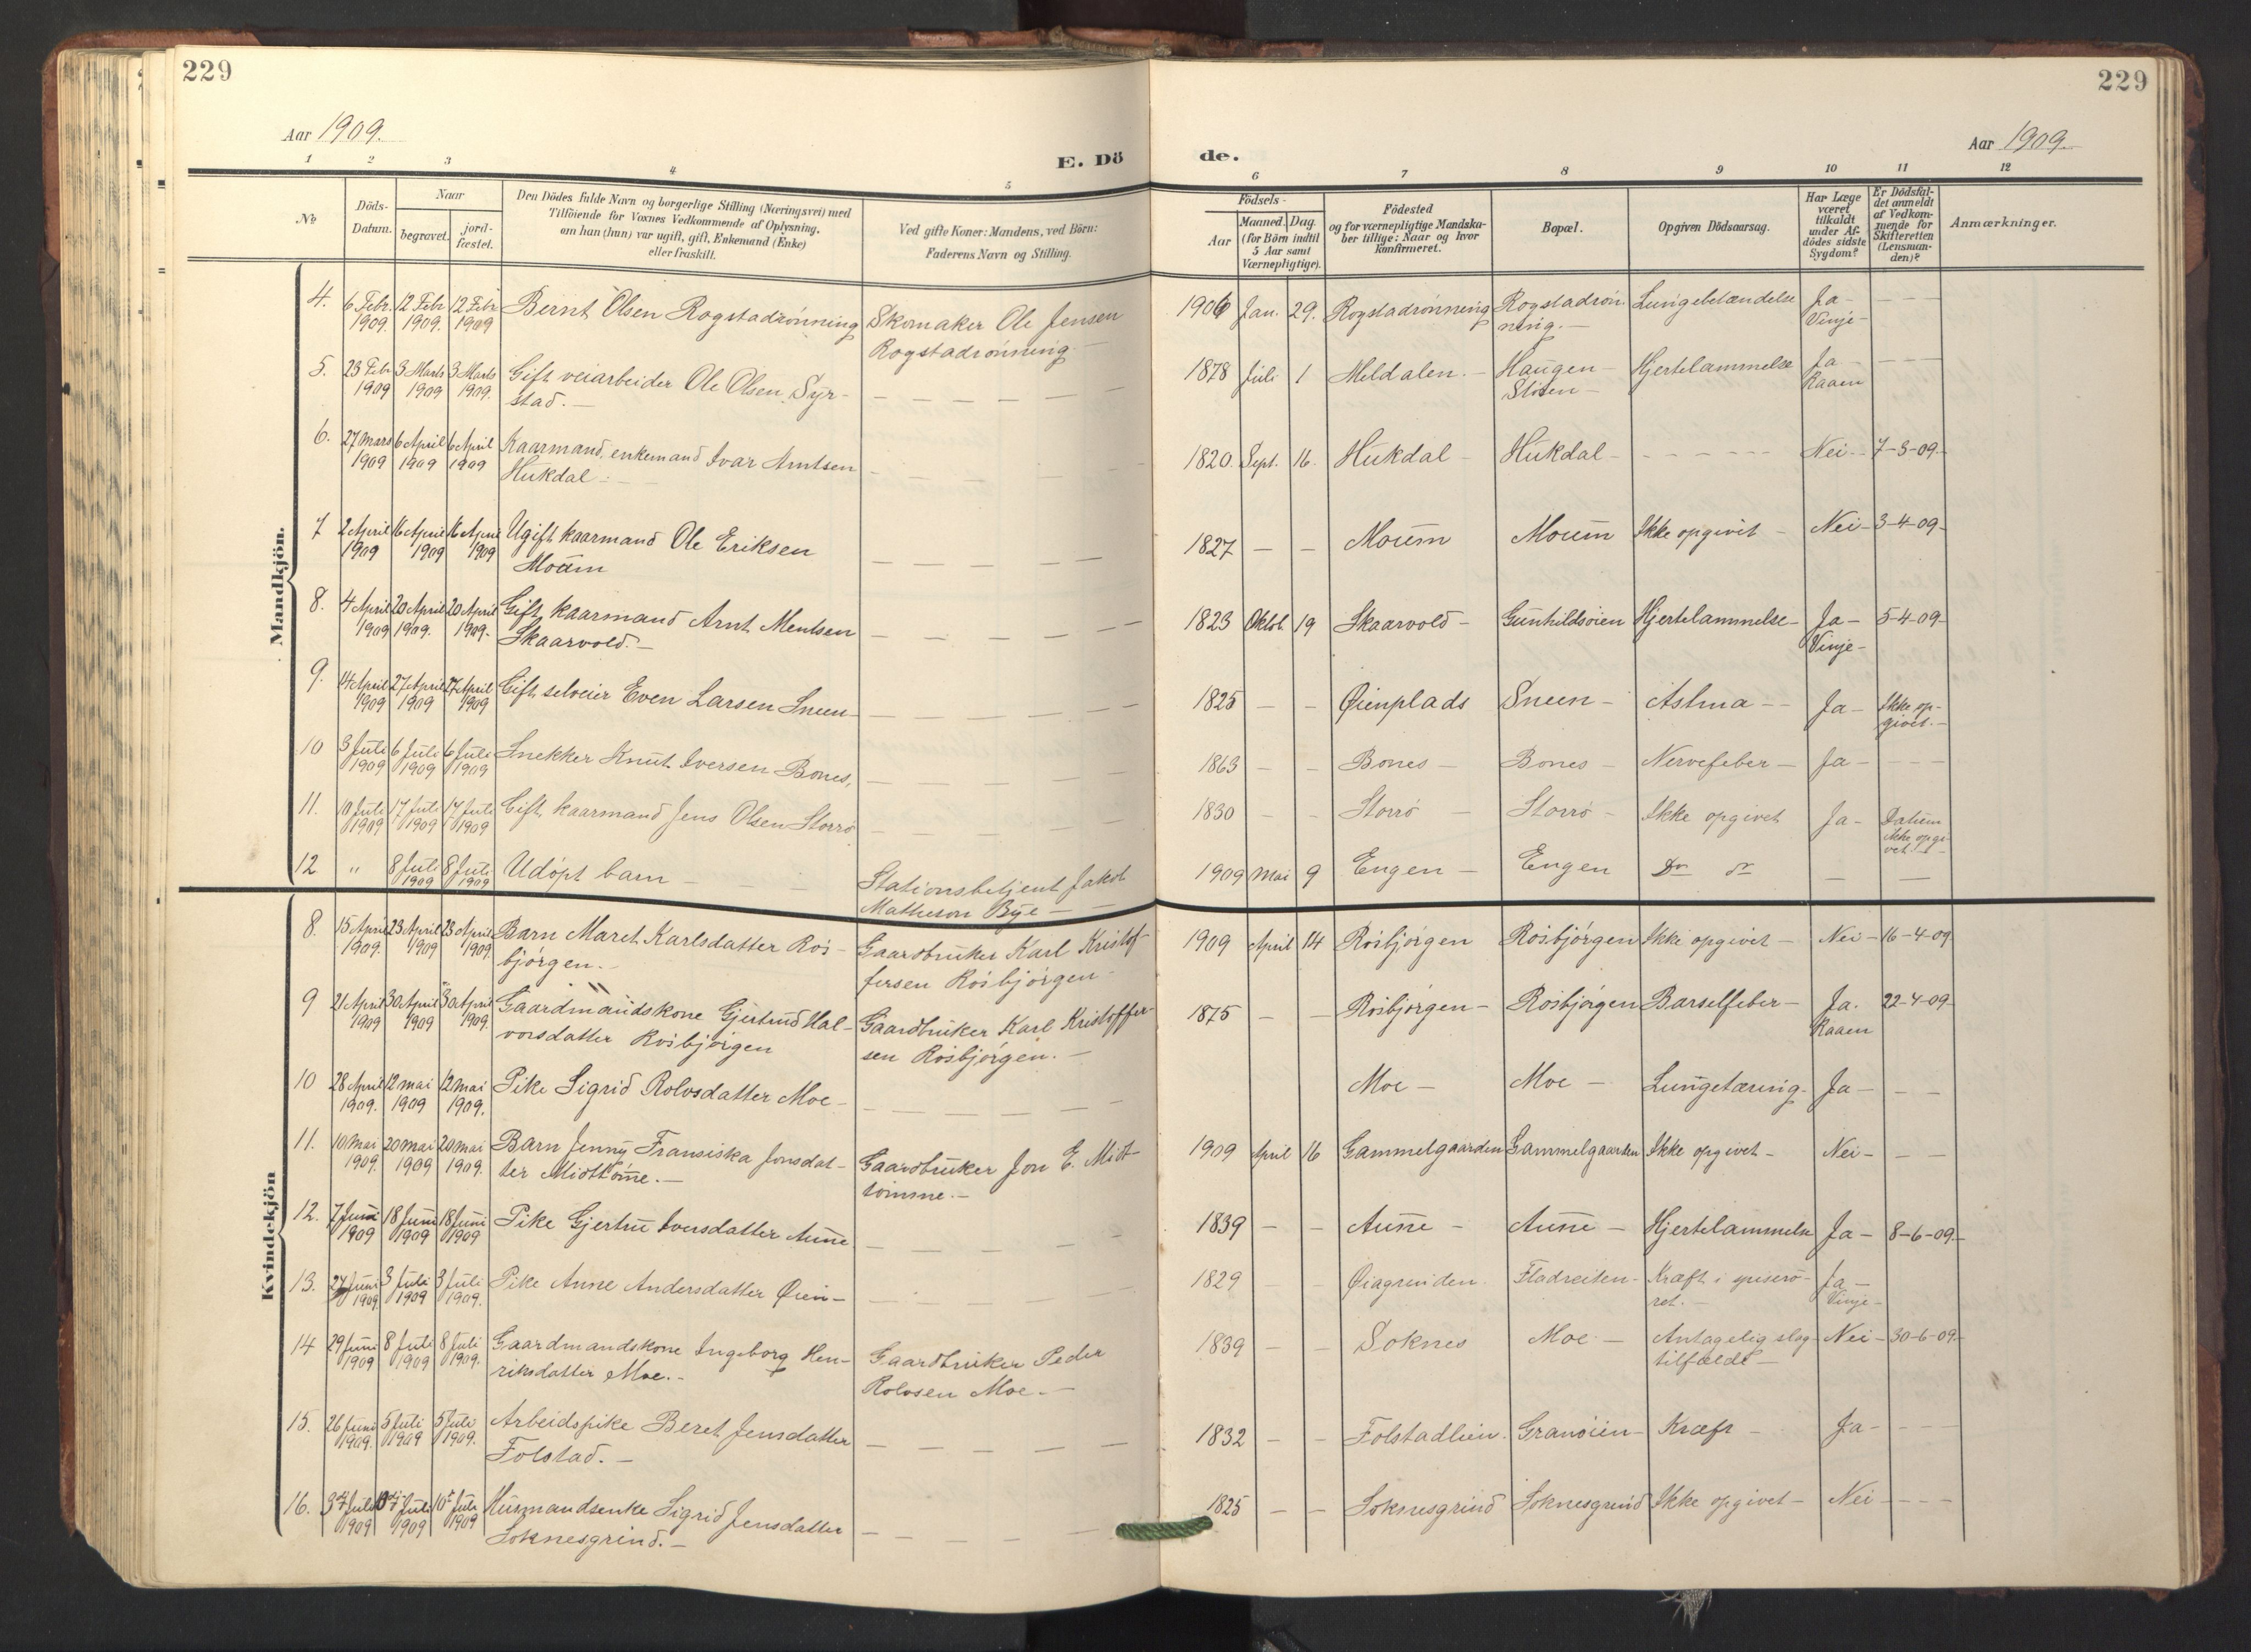 229
229
Aar 1909.
Aar 1909.
E. Dö
de.
1 2 3 4 5
6 7 8 9 10 11 12
№
Döds-
Datum.
Naar
begravet.
jord-
fæstet.
Den Dödes fulde Navn og borgerlige Stilling (Næringsvei) med
Tilföiende for Voxnes Vedkommende af Oplysning,
om han (hun) var ugift, gift, Enkemand (Enke)
eller fraskilt.
Ved gifte Koner: Mandens, ved Börn:
Faderens Navn og Stilling.
Födsels-
Aar
Maaned. Dag.
(for Börn indtil
5 Aar samt
Værnepligtige).
Födested
og for værnepligtige Mandska-
ber tillige: Naar og hvor
konfirmeret.
Bopæl.
Opgiven Dödsaarsag.
Har Læge
været
tilkaldt
under Af-
dödes sidste
Sygdom?
Er Dödsfal-
det anmeldt
af Vedkom-
mende for
Skifteretten
(Lensman-
den)?
Anmærkninger.
Mandkjön.
4. 6 Febr. 12 Febr 12 Febr Bernt Olsen Rogstadrönning Skomaker Ole Jensen 1906 Jan. 29. Rogstadrönning Rogstadrön- Lungebetændelse Ja - - - -
1909. 1909. 1909 Rogstadrönning - ning. - Vinje -
5. 23 Febr 3 Marts 3 Marts Gift veiarbeider Ole Olsen Syr- - - - - - 1878 Juli 1 Meldalen. - Haugen - Hjertelammelse Ja - - - -
1909 1909 1909. stad. - Stören - Raaen
6. 27 Mars 6 April 6 April Kaarmand, enkemand Ivar Arntsen - - - - - 1820. Sept. 16. Hukdal - Hukdal - - - - - - Nei - 7-3-09.-
1909 1909 1909 Hukdal. -
7 2 April 16 April 16 April Ugift kaarmand Ole Eriksen - - - - - 1827 - - Moum Moum Ikke opgivet - Nei - 3-4-09-
1909 1909 1909 Moum
8. 4 April 20 April 20 April Gift kaarmand Arnt Mentsen - - - - - 1823 Oktob. 19 Skaarvold - Gunhildsöien Hjertelammelse - Ja - 5-4-09-
1909 1909. 1909. Skaarvold. - Vinje -
9. 14 April 27 April 27 April Gift selveier Even Larsen Sneen - - - - - 1825 - - Öienplads Sneen - Astma - - Ja - Ikke op-
1909 1909 1909 givet. -
10 3 Juli 6 Juli 6 Juli Snekker Knut Iversen Bones, - - - - - 1863 - - Bones - Bones - Nervefeber - Ja - - - -
1909 1909 1909
11. 10 Juli 17 Juli 17 Juli Gift kaarmand Jens Olsen Storrö - - - - - 1830 - - Storrö - Storrö - Ikke opgivet Ja - Datum
1909 1909 1909 ikke opgi-
vet. -
12 " 8 Juli 8 Juli Udöpt barn - - - Stationsbetjent Jakob 1909 Mai 9 Engen - Engen Do do - -
1909 1909 Matheson Bye - -
Kvindekjön
8. 15 April 23 April 23 April Barn Maret Karlsdatter Rös- Gaardbruker Karl Kristof- 1909 April 14 Rösbjörgen Rösbjörgen Ikke opgivet - Nei - 16-4-09
1909. 1909 1909. björgen. - fersen Rösbjörgen -
9 21 April 30 April 30 April Gaardmandskone Gjertrud Hal- Gaardbruker Karl Kristoffer- 1875 - - Rösbjörgen - Rösbjörgen Barselfeber - Ja. 22-4-09-
1909 1909 1909. vorsdatter Rösbjörgen sen Rösbjörgen. - Raaen
10 28 April 12 mai 12 mai Pike Sigrid Rolvsdatter Moe - - - - - - Moe - Moe - Lungetæring - Ja - - -
1909. 1909 1909.
11. 10 Mai 20 mai 20 mai Barn Jenny Fransiska Jonsdat- Gaardbruker Jon E. Midt- 1909 April 16 Gammelgaarden Gammelgaarden Ikke opgivet - Nei - - -
1909. 1909 1909. ter Midttömme. - tömme. -
12. 7 Juni 18 Juni 18 Juni Pike Gjertru Iversdatter Aune - - - - - 1839 - - Aune - Aune - Hjertelammelse Ja - 8-6-09.-
1909 1909 1909
13. 27 Juni 3 Juli 3 Juli Pike Anne Andersdatter Öien - - - - - - 1829 - - Öiagrinden. Fladreiten - Kræft i spiserö- Ja -
1909 1909 1909. ret. - Vinje -
14 29 Juni 8 Juli 8 Juli Gaardmandskone Ingeborg Hen- Gaardbruker Peder 1839 - - Soknes Moe - Antagelig slag- Nei - 30-6-09-
1909 1909 1909. riksdatter Moe. - Rolvsen Moe. - tilfælde -
15. 26 Juni 5 Juli 5 Juli Arbeidspike Beret Jensdatter - - - - - 1832 - - Folstadlien. Granöien - Kræft - Ja - - - -
1909. 1909 1909. Folstad. -
16. 3 Juli 10 Juli 10 Juli Husmandsenke Sigrid Jensdatter - - - - - 1825 - - Soknesgrind Soknesgrind Ikke opgivet - Nei - - - -
1909 1909 1909 Soknesgrind. -